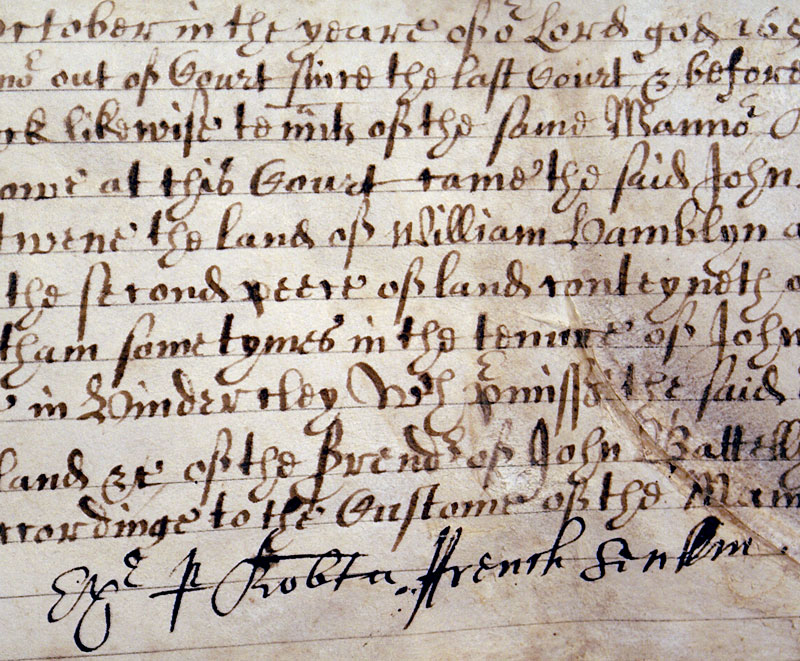 October in the yeare of or Lord god 165
out of Court since the last Court & before
likewise tennts of the same Mannor
at this Court came the said John
twene the land of William Hamblyn a
the second peece of land conteyneth
tham sometymes in the tenure of John
in Hindercley Wch pmiss the said
land &c of the Prendr of John Battelly
ccordinge to the Custome of the Mann
Exr p Robtu ffrench